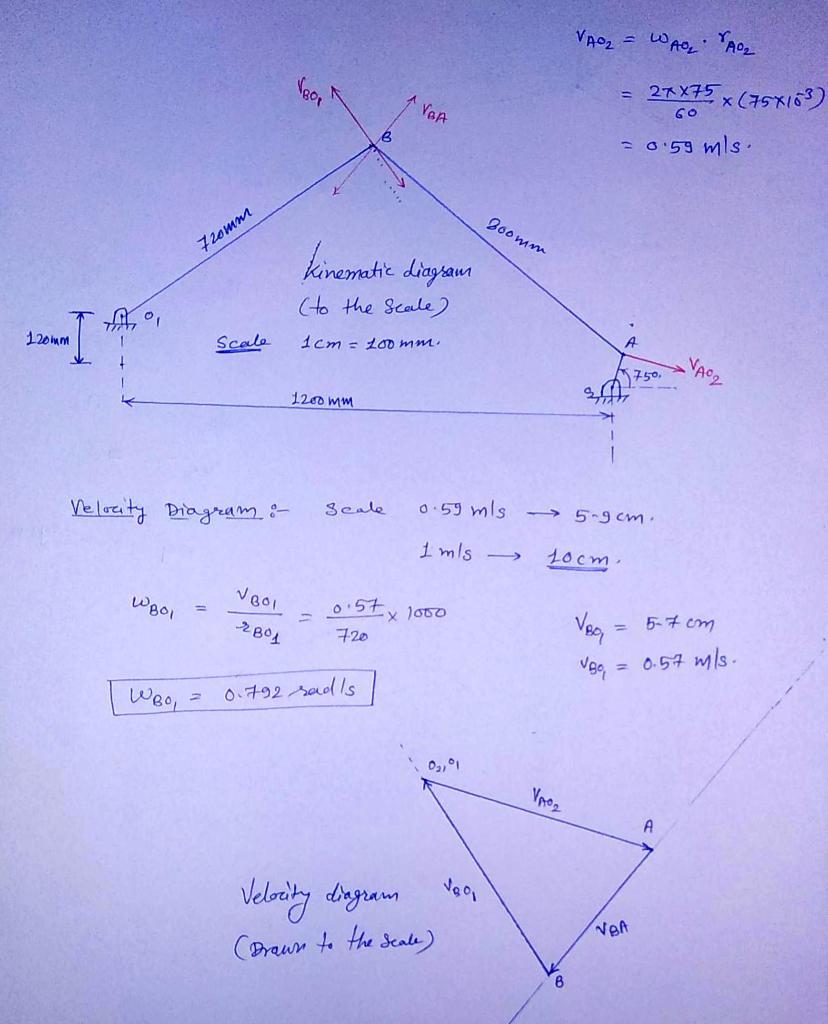 V_AO₂ = ω_AO₂ · r_AO₂
= 2π×75/60 × (75×10⁻³)
= 0.59 m/s.
V_BO₁
V_BA
B
720mm
800mm
Kinematic diagram
(to the Scale)
O₁
120mm
Scale 1cm = 100 mm.
A
V_AO₂
750.
O₂
1200 mm
Velocity Diagram :- Scale 0.59 m/s → 5.9 cm.
1 m/s → 10cm.
ω_BO₁ = V_BO₁/r_BO₁ = 0.57/720 × 1000
V_BO₁ = 5.7 cm
V_BO₁ = 0.57 m/s.
ω_BO₁ = 0.792 rad/s
O₂,O₁
V_AO₂
A
Velocity diagram
V_BO₁
(Drawn to the Scale)
V_BA
B